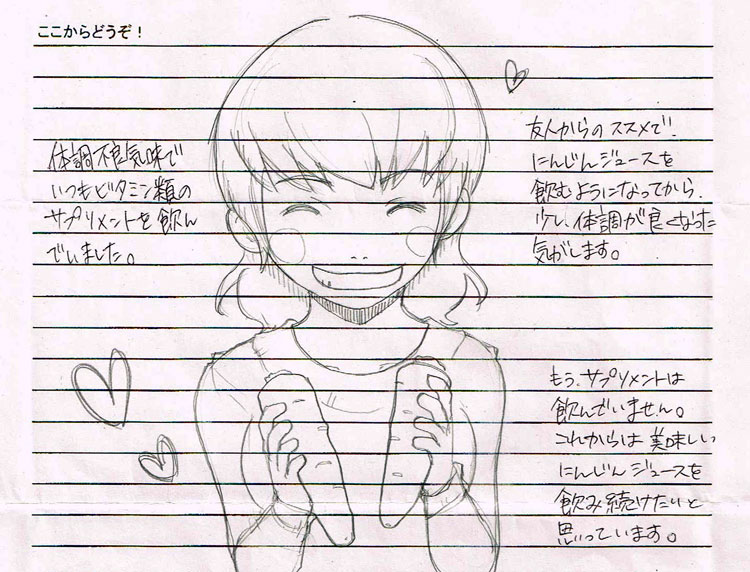 ここからどうぞ！
体調不良気味で
いつもビタミン類の
サプリメントを飲ん
でいました。
友人からのススメで、
にんじんジュースを
飲むようになってから、
少し、体調が良くなった
気がします。
もう、サプリメントは
飲んでいません。
これからは美味しい
にんじんジュースを
飲み続けたいと
思っています。